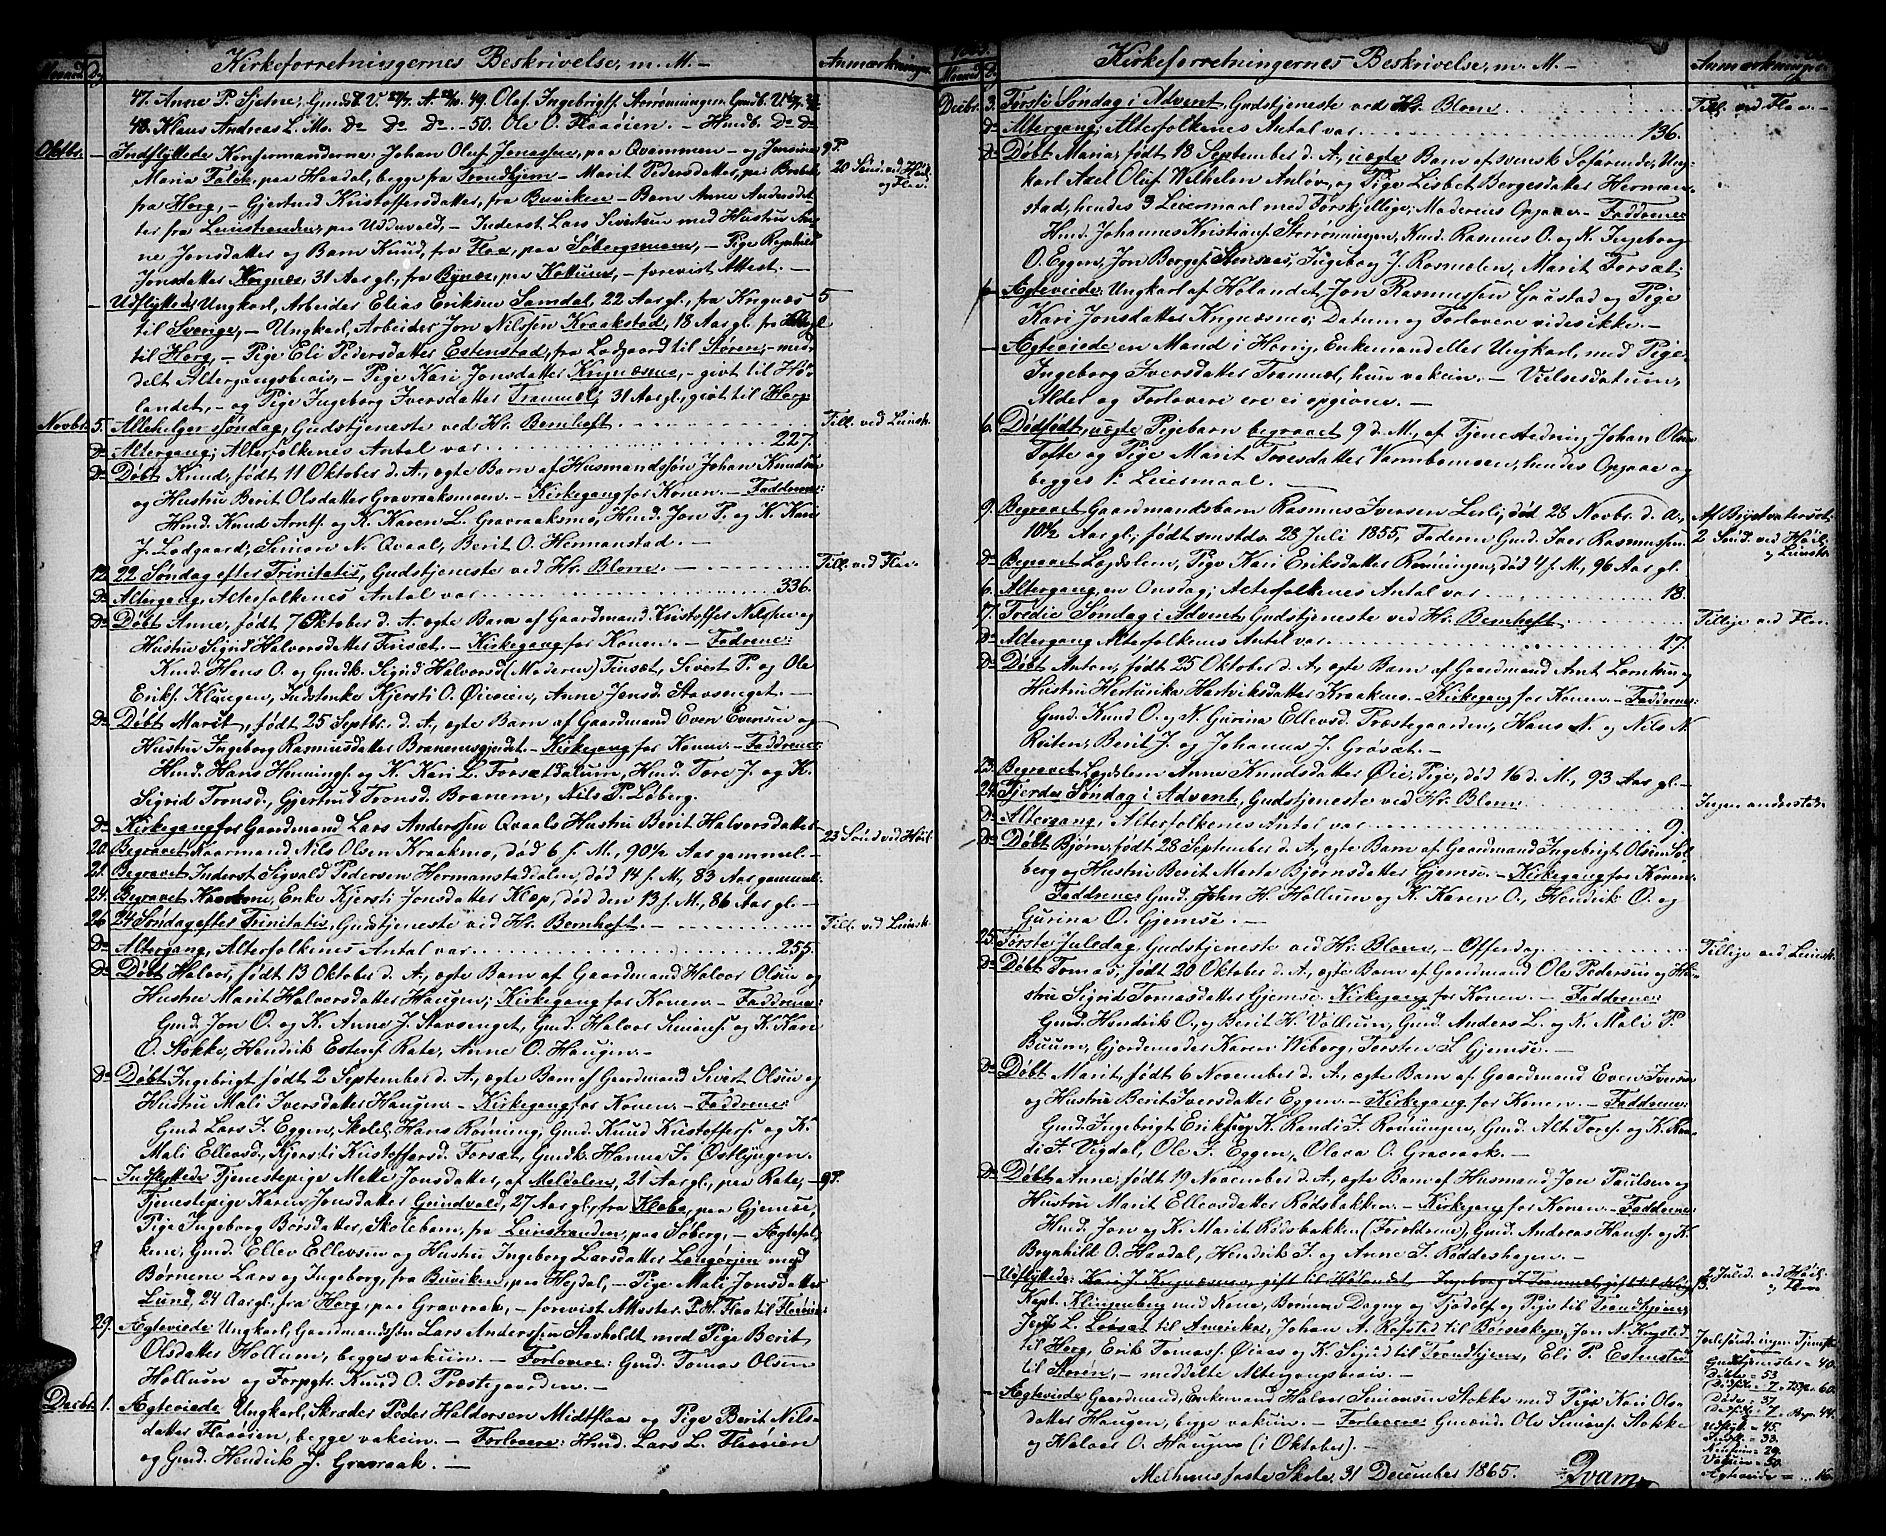 Maaned D. Kirkeforretningernes Beskrivelse, m. M. — Anmærkninger
47. Anne P. Sjetne, Gmdsk. V. A. 49. Olaf Ingebrigts. Strømningen Gmdb. V.
48. Klaus Andreas L. Mo. Do Do Do — 50. Ole O. Flaaøien. — Husdb. Do Do
Oktbr. — Indflyttede Konfirmanderne: Johan Oluf Jonassen, paa Qvammen — og Jensine
Maria Falck, paa Haadal, begge fra Trondhjem — Marit Pedersdatter, paa
fra Horg, — Gjertrud Kristoffersdatter, fra Buviken — Barn Anne Andersdat-
ter fra Leinstranden, paa Udduvold, — Inderst Lars Sivertsen med Hustru An-
ne Jonsdatter og Barn Knud, fra Flaa, paa Søbergsmoen, — Pige Ragnhild
Jonsdatter Krignæs, 31 Aar gl., fra Bynæs, paa Kollum, — forevist Attest. —
— Udflyttede, Ungkarl, Arbeider Elias Eriksen Samdal, 22 Aar gl., fra Krignæs
til Sverige, — Ungkarl, Arbeider Jon Nilssen Kraakstad, 18 Aar gl. fra
til Horg, — Pige Eli Pedersdatter Estenstad, fra Lodgaard til Støren, — med-
delt Altergangsbevis, — Pige Kari Jonsdatter Krignæsmo, — givt til Høi-
landet, — og Pige Ingeborg Iversdatter Trammel, 31 Aar gl., givt til Horg.
Novbr. 5. Allehelgenssøndag, Gudstjeneste ved Hr. Bernhoft. Till. ved Leinstr.
Do Altergang; Alterfolkenes Antal var 227.
Do Døbt Knud, født 11 Oktober d. A., ægte Barn af Husmandssøn Johan Knudsen
og Hustru Berit Olsdatter Gravraaksmoen. — Kirkegang for Konen. — Faddrene:
Husd. Knud Arnts. og K. Karen L. Gravraaksmo, Husd. Jon P. og K. Kari
J. Lodgaard; Simon N. Qvaal, Berit O. Hermanstad. —
12. 22. Søndag efter Trinitatis, Gudstjeneste ved Hr. Blom. — Till. ved Flaa.
Do Altergang, Alterfolkenes Antal var 336.
Do Døbt Anne, født 7 Oktober d. A., ægte Barn af Gaardmand Kristoffer Nilssen og
Hustru Sigrid Halvorsdatter Tinsæt. — Kirkegang for Konen — Fadrene:
Knud Hans O. og Gmdk. Sigrid Halvorsd. (Moderen) Tinsæt, Sivert P. og Ole
Eriks. Klungen, Indstenke Kjersti O. Øiesein, Anne Jensd. Stavsenget. —
Do Døbt Marit, født 25 Septbr. d. A., ægte Barn af Gaardmand Even Evensen og
Hustru Ingeborg Rasmusdatter Branemsgjerdet. — Kirkegang for Konen — Faddrene:
Husd. Hans Hennings. og K. Kari L. Forsætdalum, Husd. Tore J. og K.
Sigrid Tronsd., Gjertrud Tronsd. Branem, Nils P. Løberg.
Do Kirkegang for Gaardmand Lars Anderssen Qvaals Hustru Berit Halvorsdatter. 23 Sønd. ved Høil.
20. Begravet Kaarmand Nils Olsen Kraakmo, død 6 f. M., 90½ Aar gammel. —
21. Begravet Inderst Sigvald Pedersen Hermanstaddalen, død 14 f. M., 83 Aar gammel.
24. Begravet Kaarkone, Enke Kjersti Jonsdatter Klæp, død den 13 f. M., 86 Aar gl. —
26. 24 Søndag efter Trinitatis, Gudstjeneste ved Hr. Bernhoft. — Till. ved Leinstr.
Do Altergang, Alterfolkenes Antal var 255.
Do Døbt Halvor, født 13 Oktober d. A., ægte Barn af Gaardmand Halvor Olsen og
Hustru Marit Halvorsdatter Haugen; Kirkegang for Konen — Faddrene:
Gmd. Jon O. og K. Anne J. Stavsenget, Gmd. Halvor Simons. og K. Kari
O. Stokke, Hendrik Estens. Rate, Anne O. Haugen. —
Do Døbt Ingebrigt, født 2 September d. A., ægte Barn af Gaardmand Sivert Olsen og
Hustru Mali Iversdatter Haugen. — Kirkegang for Konen. — Faddrene:
Gmd. Lars I. Eggen, Skolel. Hans Rønning, Gmd. Knud Kristoffers. og K.
Mali Ellevsd., Kjersti Kristoffersd. Forsæt, Gmdk. Hanna F. Østlyngen.
— Indflyttede Tjenestepige Mette Jonsdatter, af Meldalen, 21 Aar gl., paa Rate, —
Tjenestepige Karen Jonsdatter Grindvold, 27 Aar gl., fra Klæbo, paa Gjemse,
Pige Ingeborg Børsdatter, Skolebarn, fra Leinstranden, paa Søberg. — Ægtefol-
kene, Gmd. Ellev Ellevsen og Hustru Ingeborg Larsdatter Langørjen med
Børnene Lars og Ingeborg, fra Buviken, paa Hejdal, — Pige Mali Jonsdatter
Lund, 24 Aar gl. fra Horg, paa Gravraak, — forevist Attester.
29. Ægteviede Ungkarl, Gaardmandssøn Lars Anderssen Stavholdt med Pige Berit
Olsdatter Hollum, begge vakcin. — Forlovere: Gmd. Tomas Olsen
Hollum og Forpgtr. Knud O. Præstegaarden. —
Decbr. 1. Ægteviede Ungkarl, Skræder Peder Haldorsen Midtflaa og Pige Berit Nils-
datter Flaaøien, begge vakcin. — Forlovere: Husd. Lars L. Flaaøien
og Gmd. Hendrik J. Gravraak. —
Maaned D. Kirkeforretningernes Beskrivelse, m. M. — Anmærkninger
Decbr. 3. Første Søndag i Advent, Gudstjeneste ved Hr. Blom Till. ved Flaa. —
Do Altergang; Alterfolkenes Antal var 136.
Do Døbt Maria, født 18 September d. A., uægte Barn af svensk Søfarende, Ung-
karl Axel Oluf Wilhelm Anløv, og Pige Lisbet Bergesdatter Herman-
stad, hendes 3 Leiermaal med Forskjellige; Moderens Opgave — Faddrene:
Husd. Johannes Kristians. Strømningen, Knud Rasmus O. og K. Ingeborg
O. Eggen, Jon Berges. Stensaas, Ingeborg J. Rosmælen, Marit Forsæt.
— Ægteviede: Ungkarl af Hølandet, Jon Rasmussen Gaastad og Pige
Kari Jonsdatter Krignæsmo; Datum og Forlovere vides ikke. —
— Ægteviede en Mand i Horg, Enkemand eller Ungkarl, med Pige
Ingeborg Iversdatter Trammel, hun vakcin. — Vielsesdatum,
Alder og Forlovere ere ei opgivne. —
6. Dødfødt, uægte Pigebarn begravet 9 d. M. af Tjenestedreng Johan Olsen
Tofte og Pige Marit Toresdatter Varmbomoen, hendes Opgave og
begges 1. Leiermaal. —
9. Begravet Gaardmandsbarn Rasmus Iversen Lerli, død 28 Novbr. d. A., Af Brystvatersot.
10½ Aar gl.; født smstds. 28 Juli 1855, Faderen Gmd. Iver Rasmussen. 2 Sønd. ved Høil. og Leinstr.
Do Begravet Lægdslem, Pige Kari Eriksdatter Rønningen, død 4 f. M., 96 Aar gl.
6. Altergang, en Onsdag; Alterfolkenes Antal var 18.
17. Tredie Søndag i Advent, Gudstjeneste ved Hr. Bernhoft. Tillige ved Flaa.
Do Altergang Alterfolkenes Antal var 17.
Do Døbt Anton, født 25 Oktober d. A., ægte Barn af Gaardmand Arnt Lorntsen og
Hustru Henrikka Hartviksdatter Kraakmo. — Kirkegang for Konen — Faddrene:
Gmd. Knud O. og K. Gurina Ellevsd. Præstegaarden, Hans N. og Nils N.
Reiten, Berit J. og Johannes J. Grøsæt. —
23. Begravet Lægdslem Anne Knudsdatter Øie, Pige, død 16 d. M., 93 Aar gl. —
24. Fjerde Søndag i Advent, Gudstjeneste ved Hr. Blom Ingen andersteds.
Do Altergang, Alterfolkenes Antal var 9.
Do Døbt Bjørn, født 28 September d. A., ægte Barn af Gaardmand Ingebrigt Olsen Sol-
berg og Hustru Berit Marta Bjørnsdatter Gjemse. — Kirkegang for Konen.
Faddrene: Gmd. John H. Hollum og K. Karen O., Hendrik O. og
Gurina O. Gjemse. —
25. Første Juledag, Gudstjeneste ved Hr. Blom, — Offerdag. Tillige ved Leinstr.
Do Døbt Tomas, født 20 Oktober d. A., ægte Barn af Gaardmand Ole Pedersen og Hu-
stru Sigrid Tomasdatter Gjemse. Kirkegang for Konen. — Faddrene:
Gmd. Hendrik O., og Berit H. Vollum, Gmd. Anders L. og K. Mali P.
Buum, Gjordemoder Karen Woborg, Torsten S. Gjemse. —
Do Døbt Marit, født 6 November d. A., ægte Barn af Gaardmand Even Iversen
og Hustru Berit Iversdatter Eggen. — Kirkegang for Konen. — Faddrene:
Gmd. Ingebrigt Eriks. og K. Randi I. Rønningen, Gmd. Alt. Tores. og K. Ran-
di I. Vigdal, Ole I. Eggen, Olava O. Gravraak. —
Do Døbt Anne, født 19 November d. A., ægte Barn af Husmand Jon Paulsen og
Hustru Marit Ellevsdatter Rødsbakken. — Kirkegang for Konen — Faddrene:
Husd. Jon og K. Marit Rødsbakken (Forældrene), Gmd. Andreas Hans. og K.
Brynhild O. Haadal, Hendrik I. og Anne I. Røddeshagen. —
— Udflyttede: Kari J. Krignæsmo, gift til Hølandet — Ingeborg I. Trammel, gift til Horg 2 Juled. ved Høil. og Flaa
Kapt. Klingenberg med Kone, Børnene Dagny og Tjodolf og Pige til Trondhjem,
Jens L. Løvset til Amerika, Johan A. Rofstad til Børseskogn, Jon N. Krogstad
til Horg, Erik Tomass. Øiaas og K. Sigrid til Trondhjem, Eli P. Estenstad
til Støren, — meddelte Altergangsbevis. —
Gudstjenester = 40.
Døbte = 53
Døde 37
Udflytt. = 45.
Indfl. = 33.
Vakcin = 50.
Ægteviede = 16.
— Ægteviede Gaardmand, Enkemand Halvor Simonsen Stokke med Pige Kari Ols-
datter Haugen, begge vakcin. — Forlovere: Gmænd. Ole Simons. Stokke
og Halvor O. Haugen (i Oktober). —
Melhuus faste Skole, 31 December 1865. Qvam